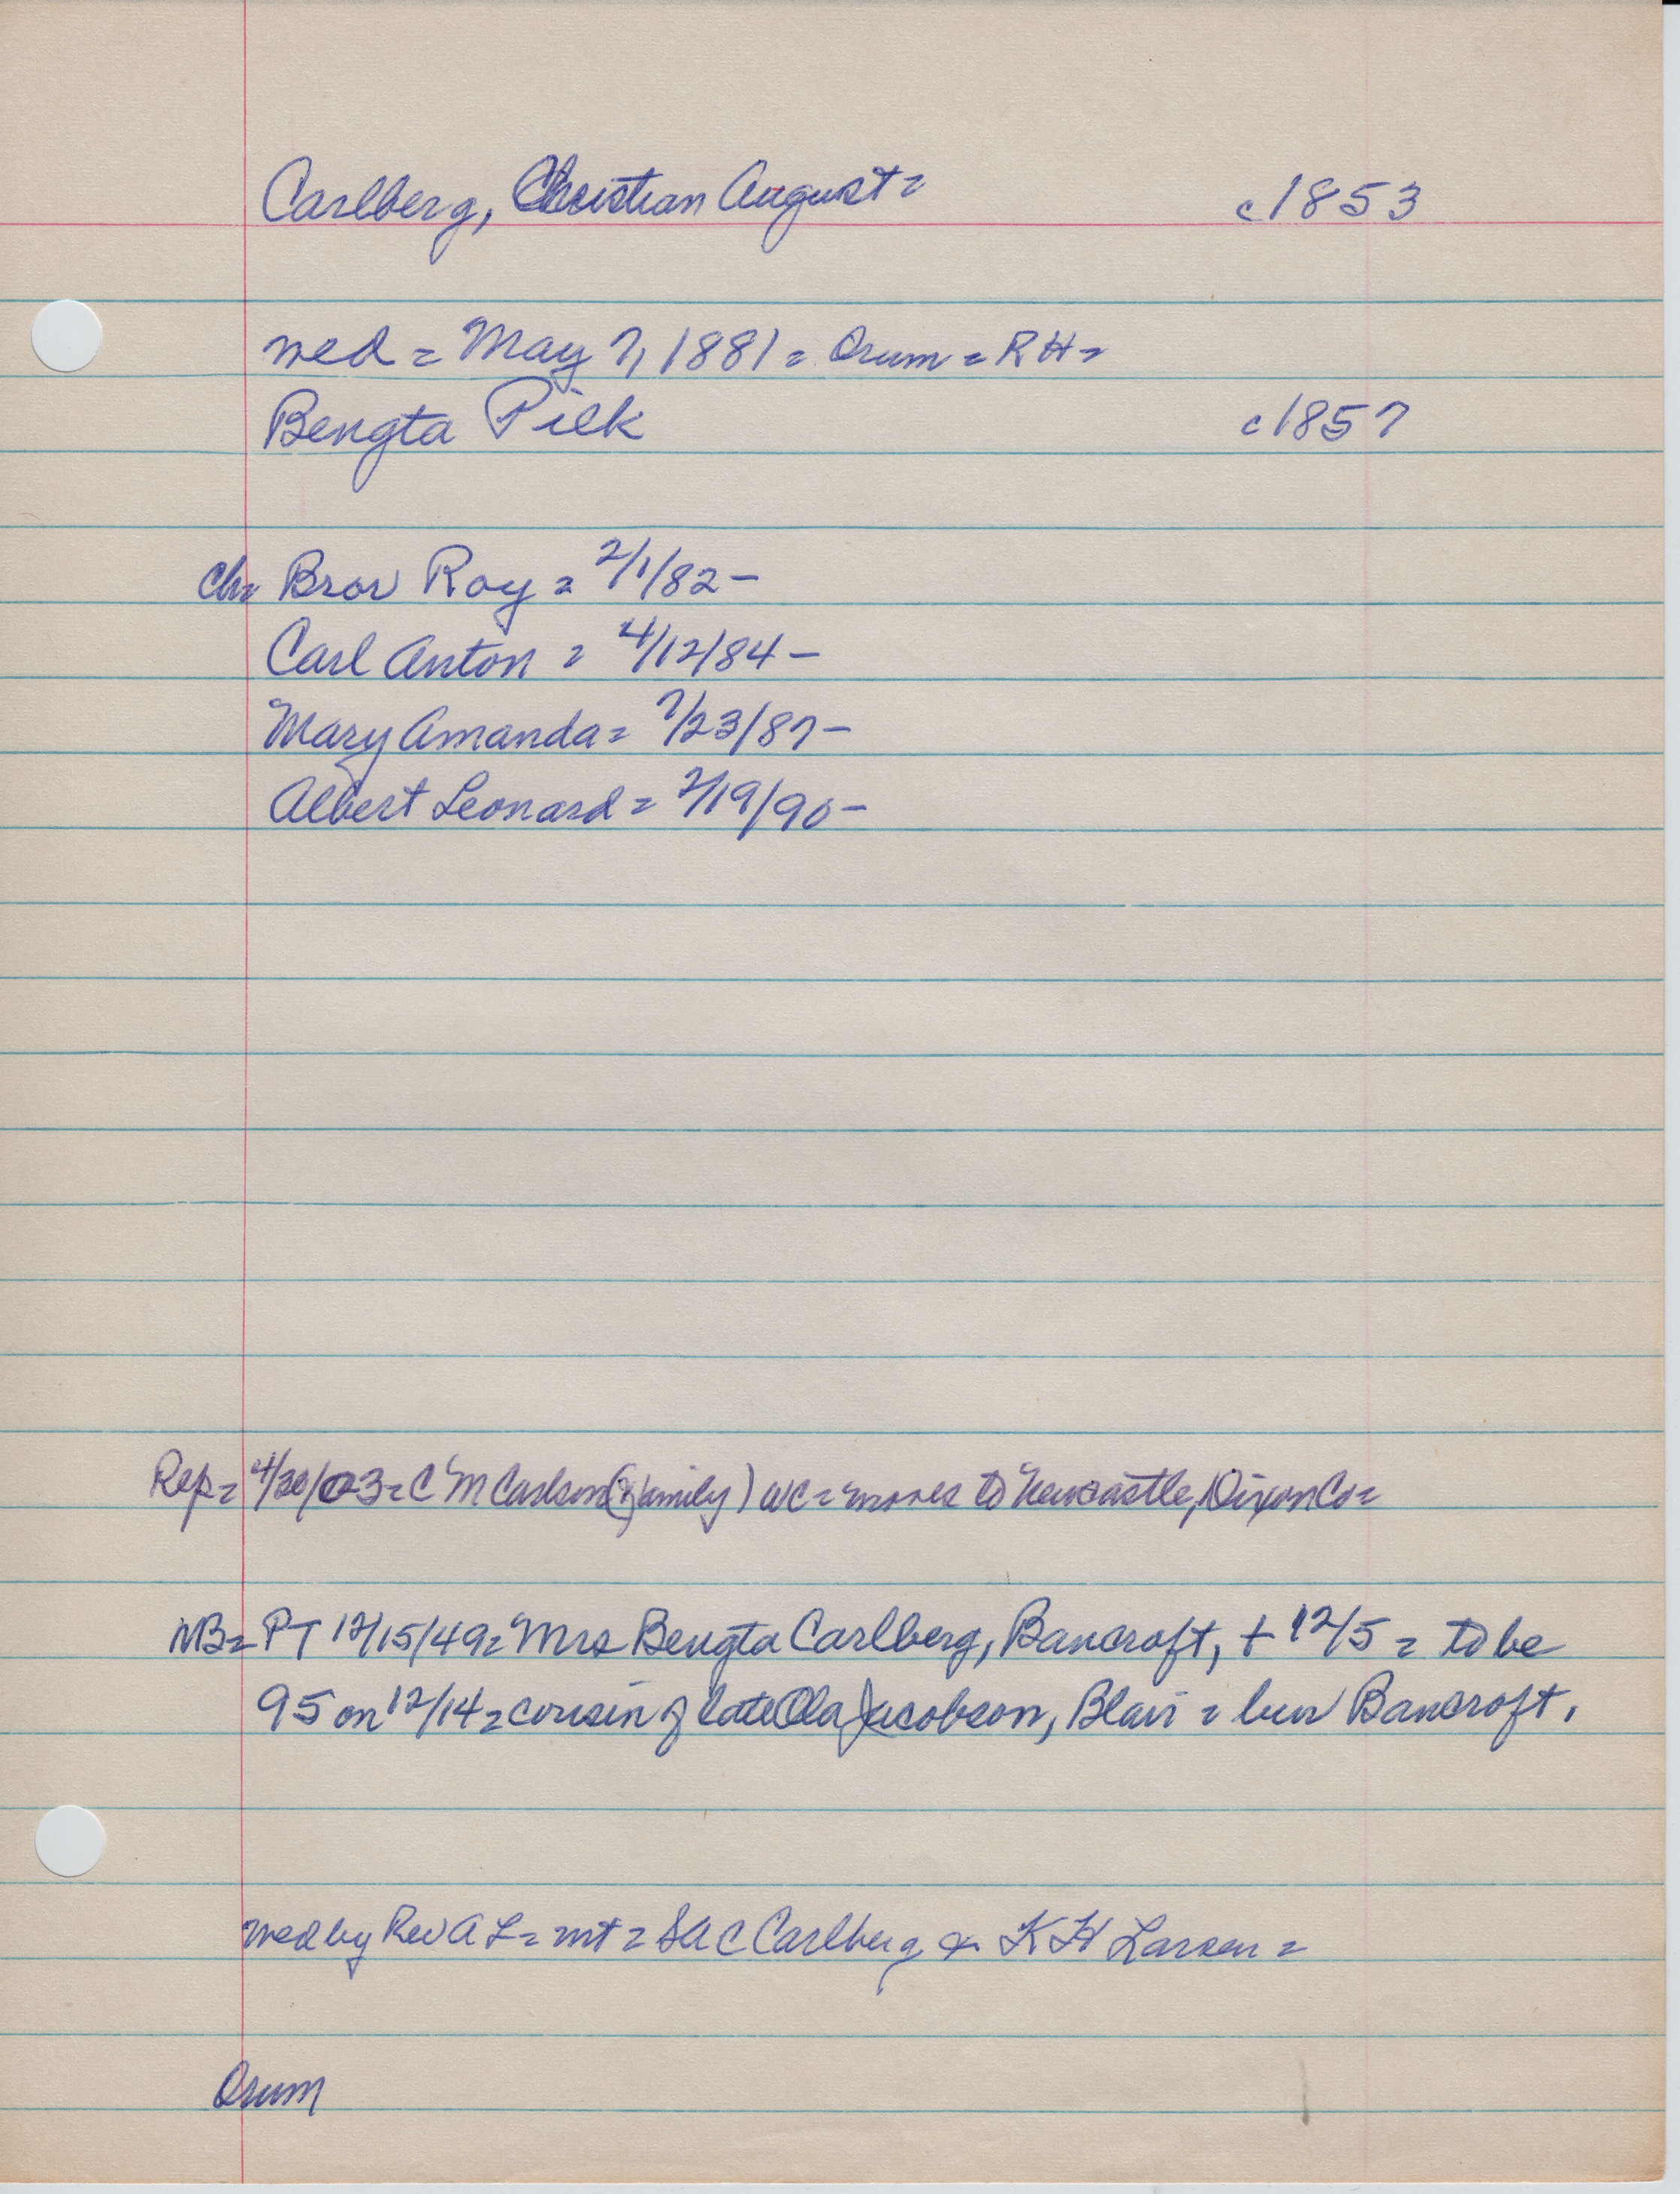 Carlberg, Christian August = c1853
wed = May 7, 1881 = Orum = RH =
Bengta Pilk c1857
ch= Bror Roy = 2/1/82 -
Carl Anton = 4/12/84 -
Mary Amanda = 7/23/87 -
Albert Leonard = 2/19/90 -
Rep = 4/30/03 = C M Carlson (& family) WC = moves to Newcastle, Dixon Co =
NB = PT 12/15/49 = Mrs Bengta Carlberg, Bancroft, + 12/5 = to be
95 on 12/14 = cousin of late Ola Jacobson, Blair = bur Bancroft.
wed by Rev A L = wt = S A C Carlberg & K H Larsen =
Orum